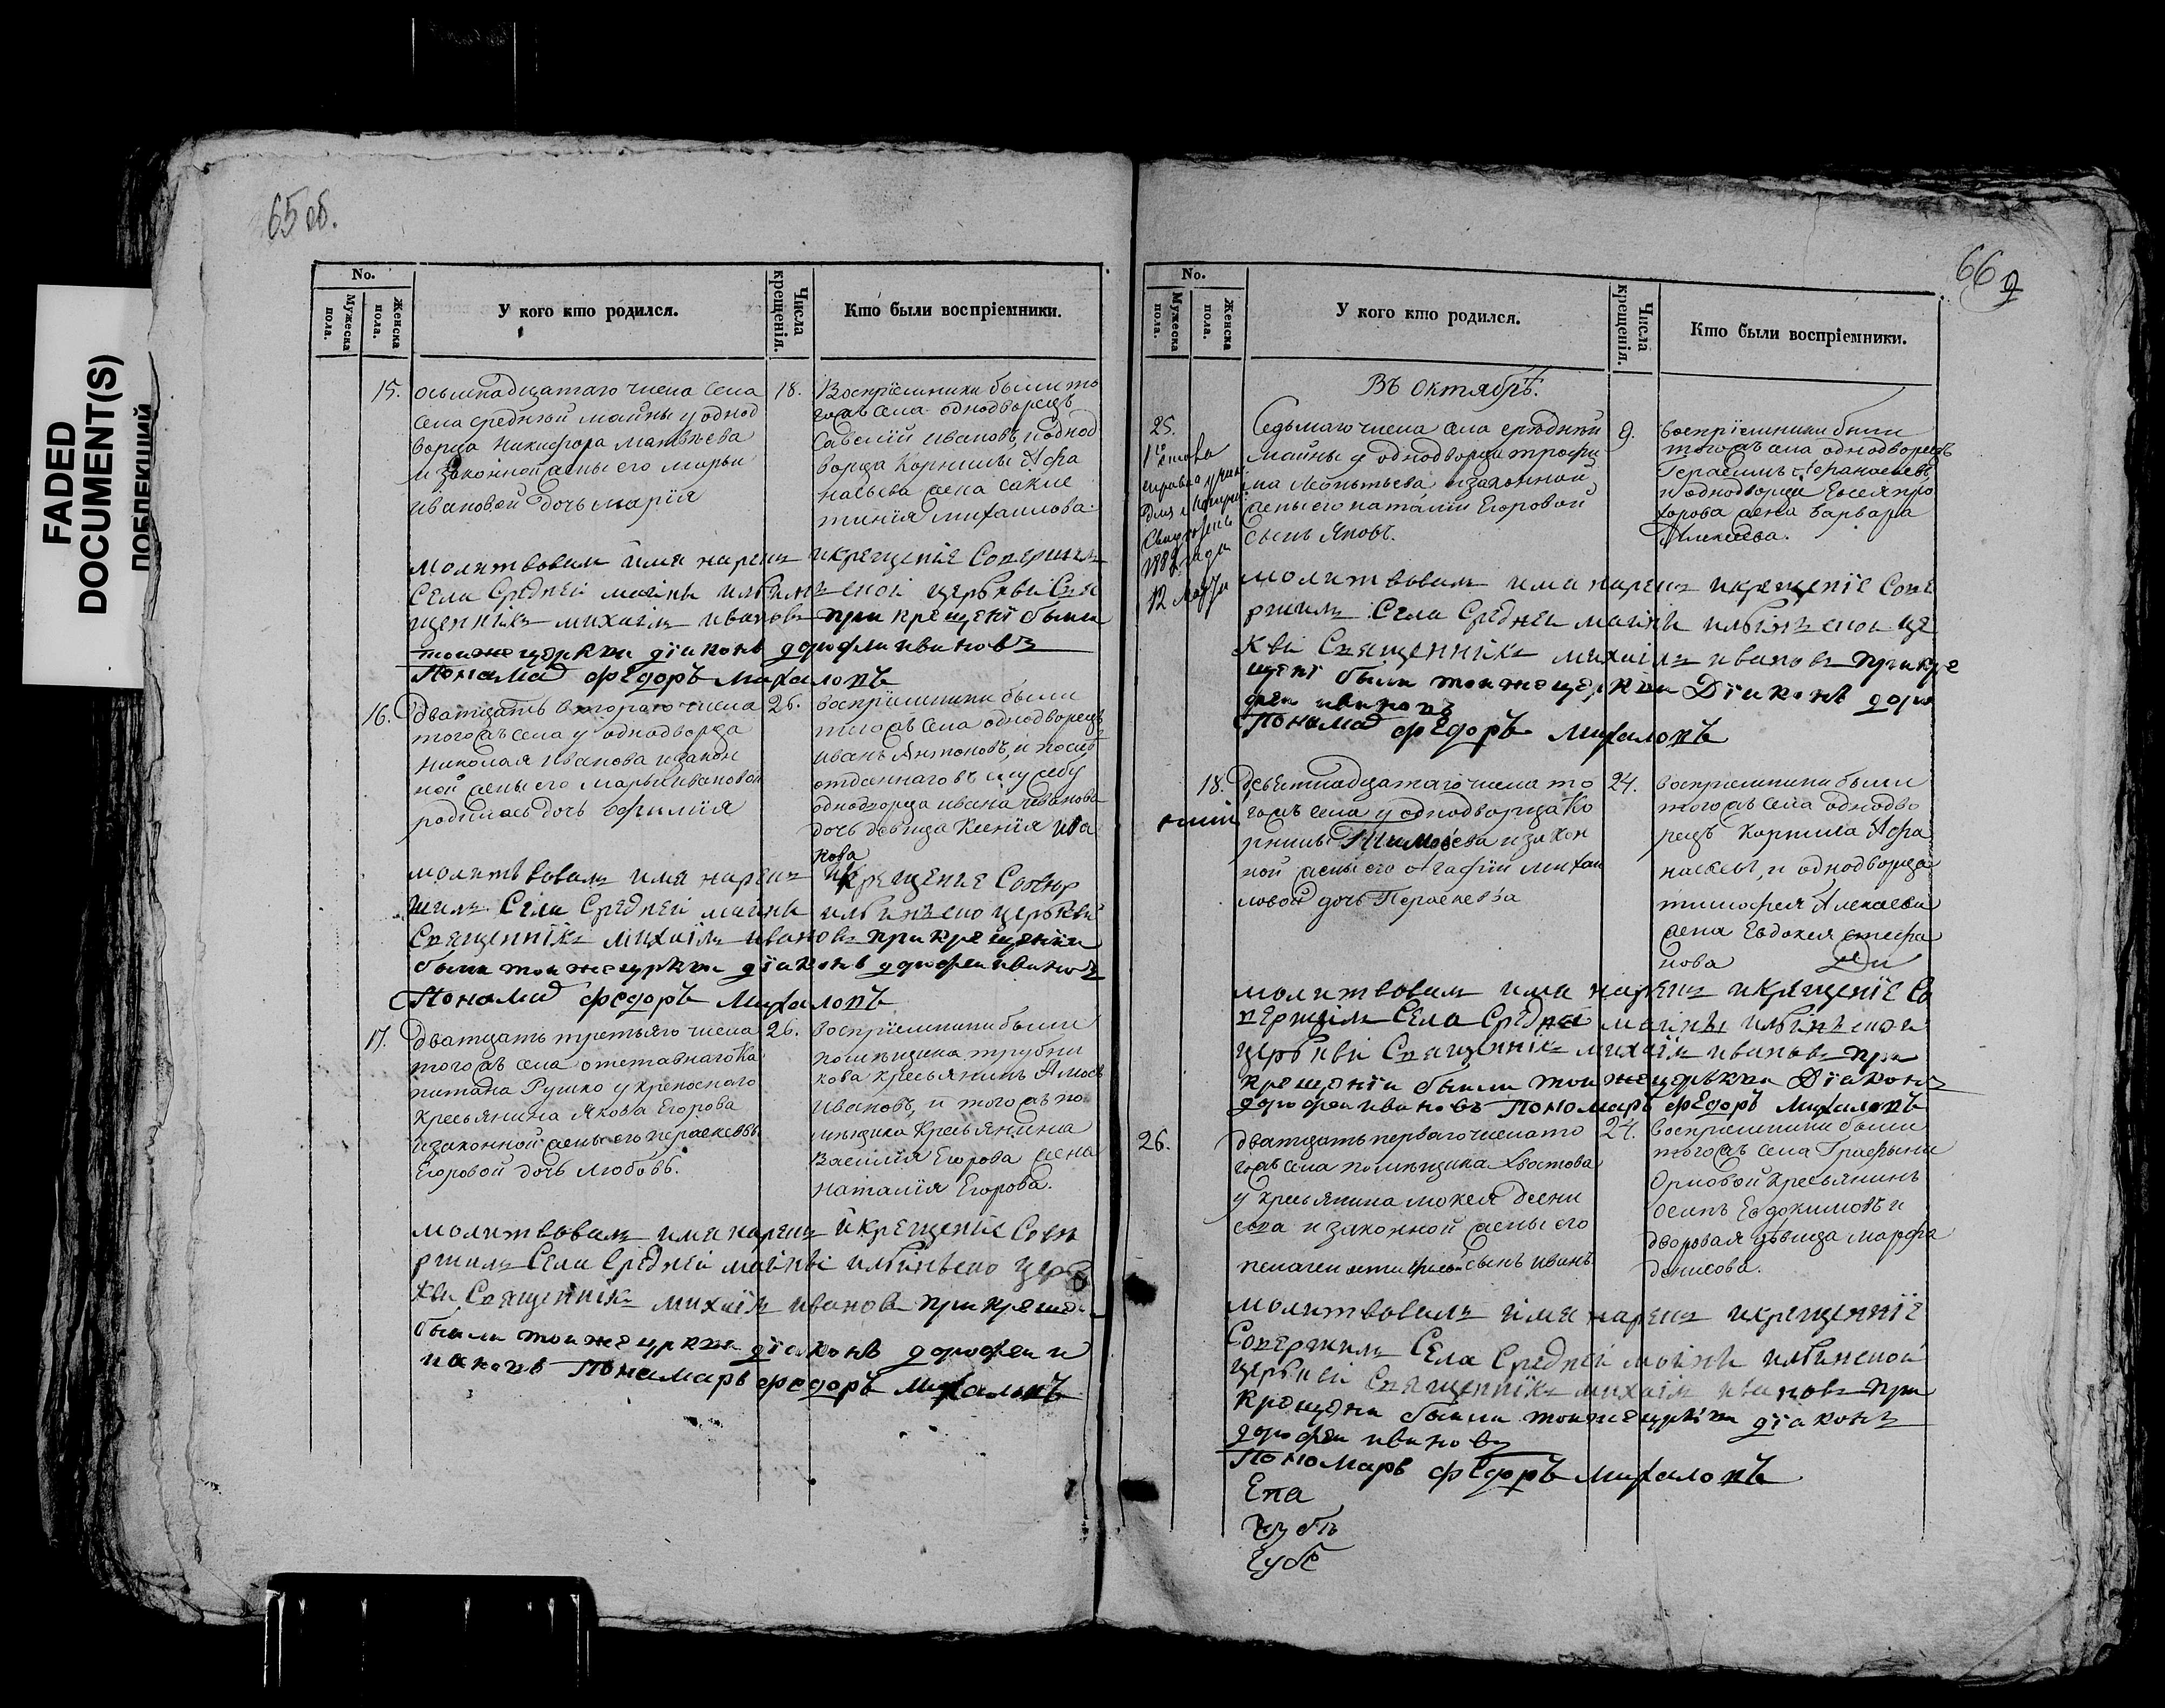 FADED
DOCUMENT(S)
ПОБЛЕКШИЙ
65 об.
No.
Мужеска пола.
Женска пола.
У кого кто родился.
Числа крещенія.
Кто были воспріемники.
15.
осьмнадцатаго числа села
села средней майны у однод
ворца Никифора Матвѣева
и законной жены его марьи
ивановой дочь марія
18.
Воспріемники были то
гожъ села однодворецъ
Савелій ивановъ, и однод
ворца Корнилы Афа
насьева жена
михаилова.
молитвовалъ имя нарекъ икрещеніе Совершилъ
Села Средней майны церькви Свя
щенникъ михаилъ ивановъ при крещени были
тои же церкви дїаконъ дорофеи ивановъ
Понамар федоръ михаловъ
16.
дватцать втораго числа
тогожъ села у однодворца
николая Иванова и закон
ной жены его марьи ивановой
родилась дочь Ефимия
26.
воспріемники были
тогожъ села однодворецъ
иванъ Антоновъ, и
отданнаго въ службу
однодворца ивана иванова
дочь девица Ксенія ива
нова
молитвовалъ имя нарекъ и крещение Совер
шилъ Села Средней майны церькви
Священникъ михаилъ ивановъ при крещении
были тои же церкви дїаконъ дорофеи ивановъ
Понамар федоръ михаловъ
17.
дватцать третьяго числа
тогожъ села отставнаго Ка
питана Рушко у крепоснаго
Крестьянина Якова Егорова
и законной жены его
Егоровой дочь любовь.
26.
воспріемники были
помѣщика трубни
кова крестьянинъ
Ивановъ, и тогожъ по
мѣщика Крестьянина
Василія Егорова жена
Наталія Егорова.
молитвовалъ имя нарекъ и крещеніе Сове
ршилъ Села Средней майны церь
кви Священникъ михаилъ ивановъ при креще
были тои же церкви дїаконъ дорофеи и
вановъ Понамарь федоръ михаловъ
66
No.
Мужеска пола.
Женска пола.
У кого кто родился.
Числа крещенія.
Кто были воспріемники.
Въ октябрѣ.
25.
12 марта
Седьмаго числа села средней
майны у однодворца трофи
ма и законной
жены его наталіи Егоровой
сынъ Яковъ.
9.
воспріемники были
тогожъ села однодворецъ
Герасимъ Афанасьевъ,
и однодворца Евсея про
хорова жена варвара
Алексѣева.
молитвовалъ имя нарекъ икрещенїе Сове
ршилъ Села Средней майны це
кви Священникъ михаилъ ивановъ при кре
щені были тои же церкви Дїаконъ доро
феи ивановъ
Понамар федоръ михаловъ
18.
девятнадцатаго числа то
гожъ села у однодворца Ко
рнилы и закон
ной жены его Агафіи михаи
ловой дочь Параскева
24.
воспріемники были
тогожъ села однодво
рецъ Корнила Афа
насьевъ, и однодворца
тимофея Алексѣева
жена Евдокея стефа
нова
молитвовалъ имя нарекъ икрещенїе Со
вершилъ Села Средней майны
церькви Священникъ михаилъ ивановъ при
крещенїи были тои же церькви Дїаконъ
дорофеи ивановъ Пономарь федоръ михаловъ
26.
дватцать перваго числа то
гожъ села помѣщика хвостова
у крестьянина мокея
и законной жены его
пелагеи сынъ иванъ
24.
воспріемники были
тогожъ села Графини
Орловой крестьянинъ
осипъ Евдокимовъ и
дворовая дѣвица марфа
денисова.
молитвовалъ имя нарекъ икрещенїе
Совершилъ Села Средней майны
церькви Священникъ михаилъ ивановъ при
крещени были тои же церкви дїаконъ
дорофеи ивановъ
Пономарь федоръ михаловъ